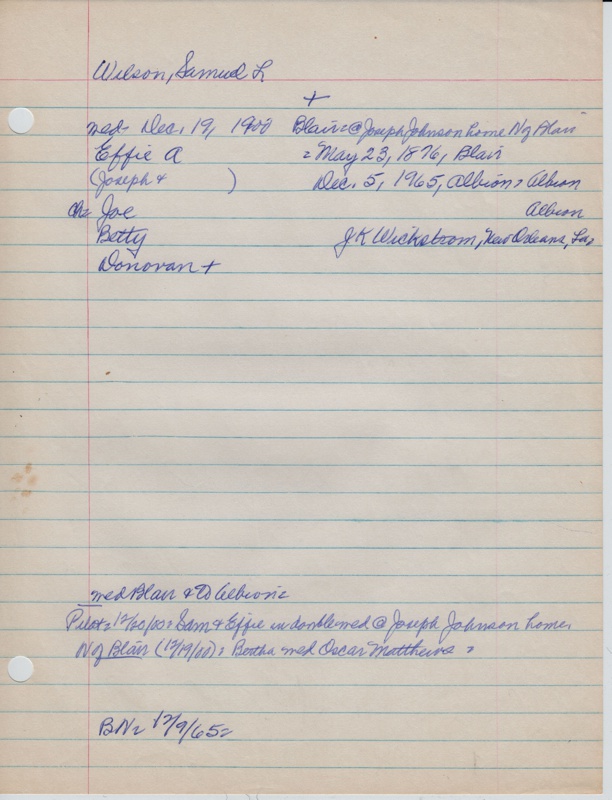 Wilson, Samuel L
+
med- Dec. 19, 1900 Blair=@ Joseph Johnson home N of Blair
Effie A = May 23, 1876, Blair
(Joseph + ) Dec. 5, 1965, Albion = Albion
Ch= Joe Albion
Betty J K Wickstrom, New Orleans, La
Donovan +
med Blair & to Albion=
Pilot= 12/20/00= Sam & Effie in double med @ Joseph Johnson home,
N of Blair (12/19/00)= Bertha med Oscar Matthews =
BN= 12/9/65=